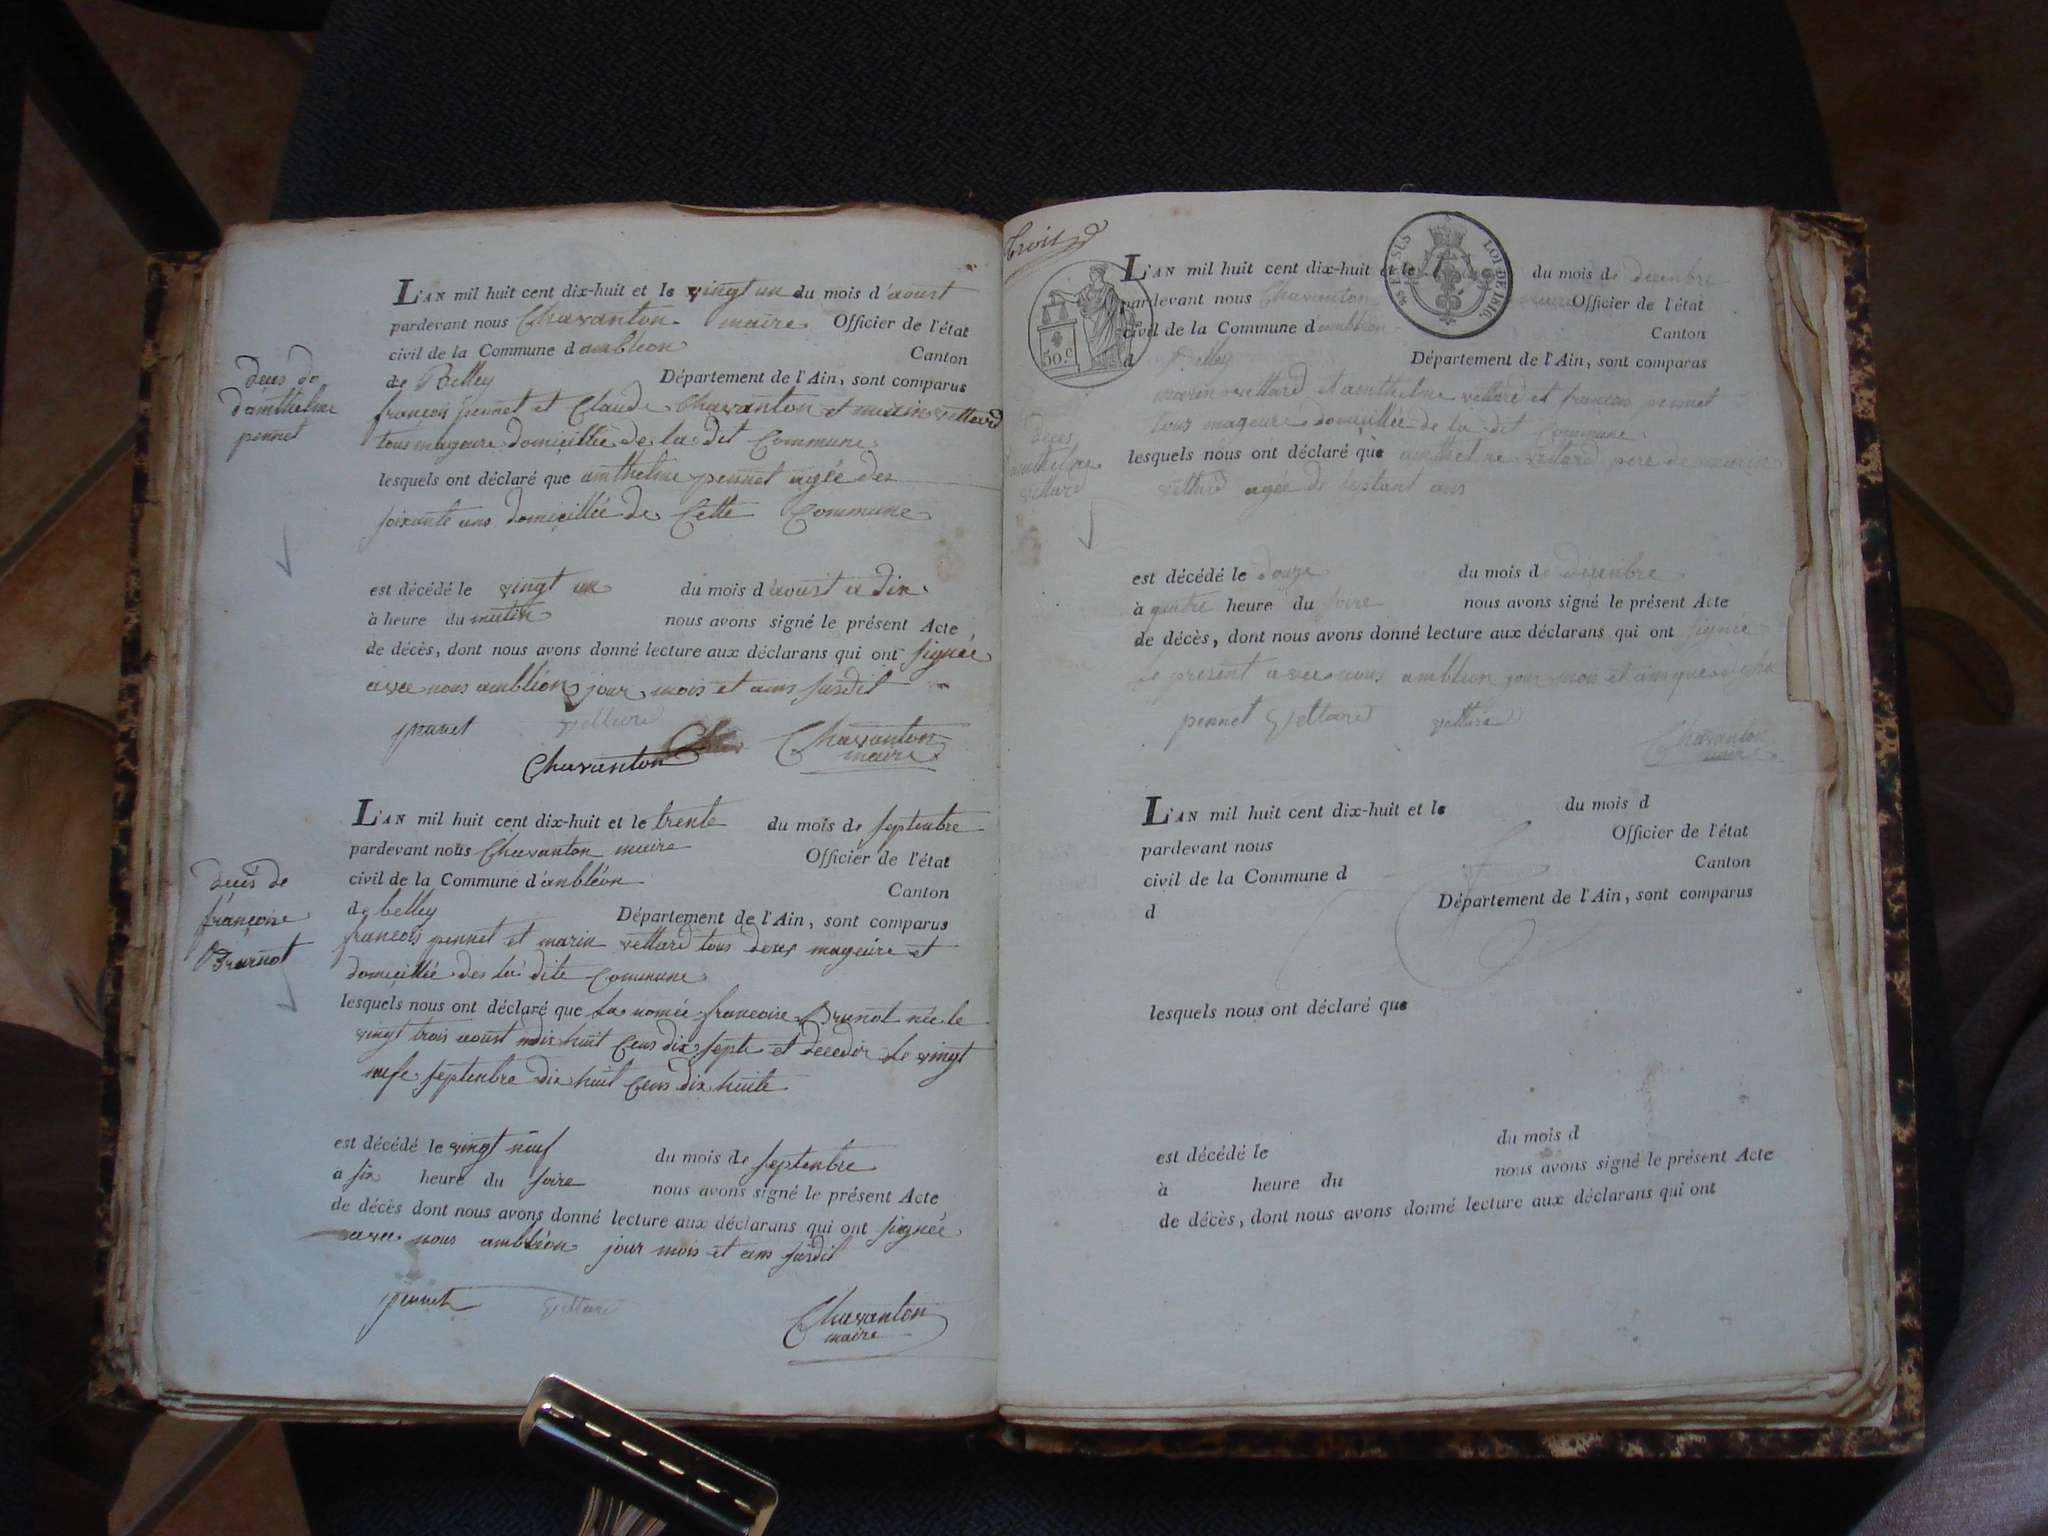 L'AN mil huit cent dix-huit et le vingt un du mois d'aoust
pardevant nous Chavanton maire Officier de l'état
civil de la Commune d'ambléon Canton
de Belley Département de l'Ain, sont comparus
deces de
d'amthelme
pennet
françois pennet et Claude Chavanton et marin vettard
tous mageure domicillié de la dit Commune
lesquels ont déclaré que amthelme pennet agée des
soixante ans domicillié de Cette Commune
est décédé le vingt un du mois d'aoust a dix
à heure du matin nous avons signé le présent Acte
de décès, dont nous avons donné lecture aux déclarans qui ont signée
avec nous ambléon jour mois et ans susdit
pennet vettard
Chavanton Chavanton
maire
L'AN mil huit cent dix-huit et le trente du mois de septembre
pardevant nous Chavanton maire Officier de l'état
civil de la Commune d'ambléon Canton
de belley Département de l'Ain, sont comparus
deces de
françoise
Brunot
francois pennet et marin vettard tous deux mageure et
domicillié des la dite Commune
lesquels nous ont déclaré que la nomée francoise Brunot née le
vingt trois aoust mdix huit Cens dix sept et decedé le vingt
neufe septembre dix huit Cens dix huite
est décédé le vingt neuf du mois de septembre
à six heure du soire nous avons signé le présent Acte
de décès dont nous avons donné lecture aux déclarans qui ont signée
avec nous ambléon jour mois et ans susdit
pennet vettard Chavanton
maire
Trois
50.c
EN SUS LOI DE 1816.
L'AN mil huit cent dix-huit et le du mois de decenbre
pardevant nous Chavanton maire Officier de l'état
civil de la Commune d'ambléon Canton
d Belley Département de l'Ain, sont comparus
marin vettard et amthelme vettard et francois pennet
tous mageure domicillié de la dit Commune
deces
amthelme
vettard
lesquels nous ont déclaré que amthelme vettard pere de marin
vettard agée de septant ans
est décédé le douze du mois de decenbre
à quatre heure du soire nous avons signé le présent Acte
de décès, dont nous avons donné lecture aux déclarans qui ont signée
le present avec nous ambléon jour mois et an que
pennet vettard vettard Chavanton
maire
L'AN mil huit cent dix-huit et le du mois d
pardevant nous Officier de l'état
civil de la Commune d Canton
d Département de l'Ain, sont comparus
lesquels nous ont déclaré que
est décédé le du mois d
à heure du nous avons signé le présent Acte
de décès, dont nous avons donné lecture aux déclarans qui ont